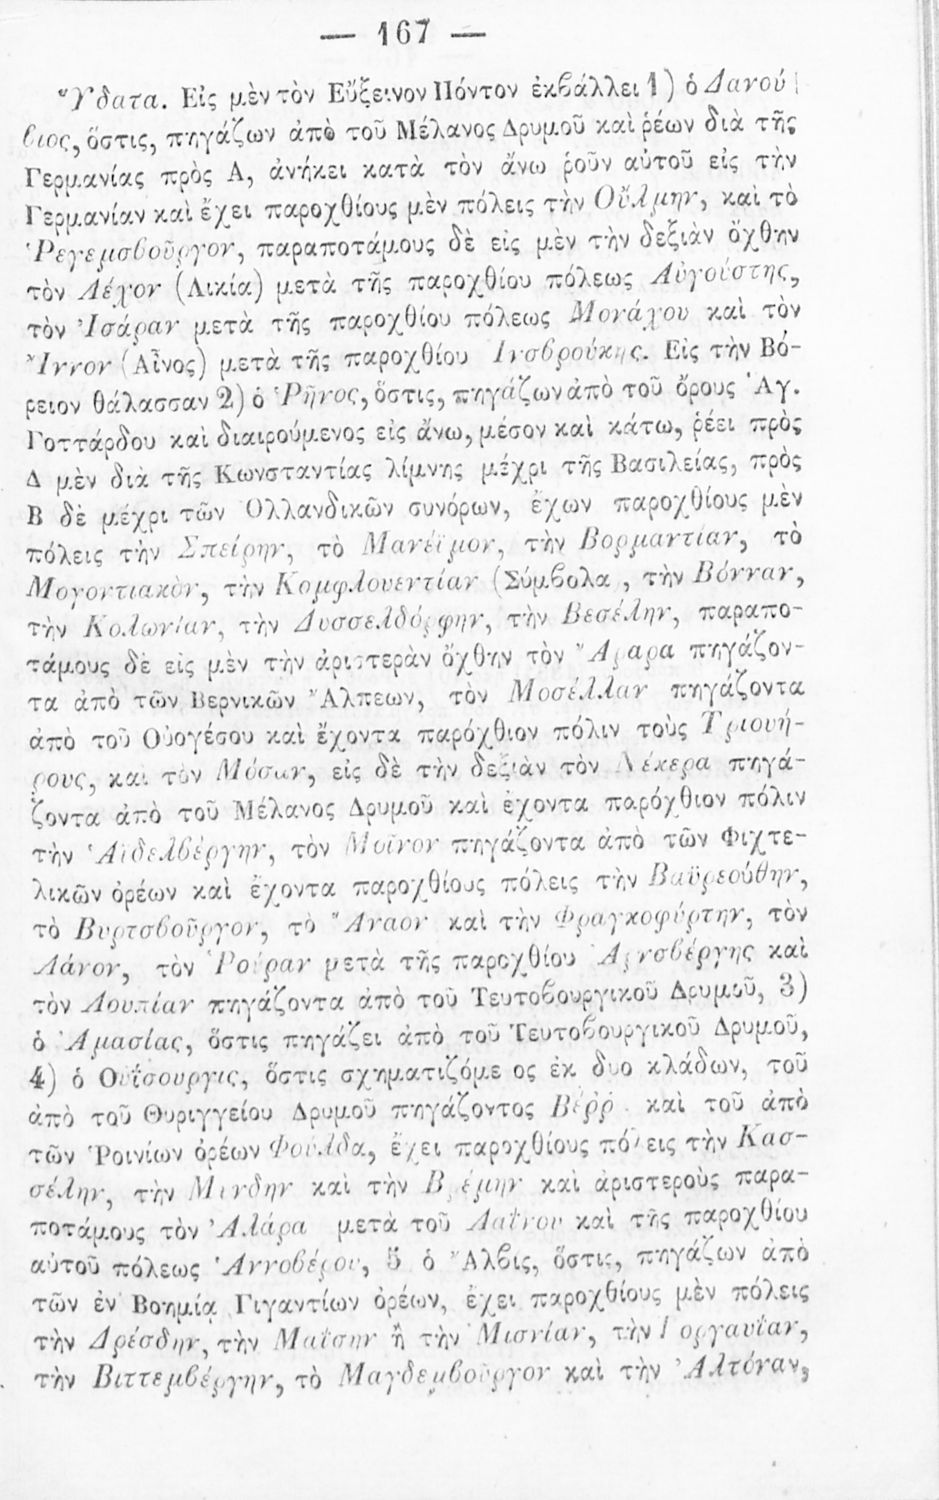 — 167 —
Ὕδατα. Εἰς μὲν τὸν Εὔξεινον Πόντον ἐκβάλλει 1) ὁ Δανού-
βιος, ὅστις, πηγάζων ἀπὸ τοῦ Μέλανος Δρυμοῦ καὶ ῥέων διὰ τῆς
Γερμανίας πρὸς Α, ἀνήκει κατὰ τὸν ἄνω ῥοῦν αὐτοῦ εἰς τὴν
Γερμανίαν καὶ ἔχει παροχθίους μὲν πόλεις τὴν Οὔλμην, καὶ τὸ
Ῥεγεμσβοῦργον, παραποτάμους δὲ εἰς μὲν τὴν δεξιὰν ὄχθην
τὸν Λέχον (Λικία) μετὰ τῆς παροχθίου πόλεως Αὐγούστης,
τὸν Ἰσάραν μετὰ τῆς παροχθίου πόλεως Μονάχου καὶ τὸν
Ἴννον (Αἶνος) μετὰ τῆς παροχθίου Ἰνσβρούκης. Εἰς τὴν Βό-
ρειον θάλασσαν 2) ὁ Ῥῆνος, ὅστις, πηγάζων ἀπὸ τοῦ ὄρους Ἁγ.
Γοττάρδου καὶ διαιρούμενος εἰς ἄνω, μέσον καὶ κάτω, ῥέει πρὸς
Δ μὲν διὰ τῆς Κωνσταντίας λίμνης μέχρι τῆς Βασιλείας, πρὸς
Β δὲ μέχρι τῶν Ὁλλανδικῶν συνόρων, ἔχων παροχθίους μὲν
πόλεις τὴν Σπείρην, τὸ Μανέϊμον, τὴν Βορμαντίαν, τὸ
Μογοντιακὸν, τὴν Κομφλουεντίαν (Σύμβολα, τὴν Βόνναν,
τὴν Κολωνίαν, τὴν Δυσσελδόρφην, τὴν Βεσέλην, παραπο-
τάμους δὲ εἰς μὲν τὴν ἀριστερὰν ὄχθην τὸν Ἄραρα πηγάζον-
τα ἀπὸ τῶν Βερνικῶν Ἄλπεων, τὸν Μοσέλλαν πηγάζοντα
ἀπὸ τοῦ Οὐογέσου καὶ ἔχοντα παρόχθιον πόλιν τοὺς Τριουή-
ρους, καὶ τὸν Μόσαν, εἰς δὲ τὴν δεξιὰν τὸν Νέκερα πηγά-
ζοντα ἀπὸ τοῦ Μέλανος Δρυμοῦ καὶ ἔχοντα παρόχθιον πόλιν
τὴν Ἁϊδελβέργην, τὸν Μοῖνον πηγάζοντα ἀπὸ τῶν Φιχτε-
λικῶν ὀρέων καὶ ἔχοντα παροχθίους πόλεις τὴν Βαϋρεούθην,
τὸ Βυρτσβοῦργον, τὸ Ἄναον καὶ τὴν Φραγκοφύρτην, τὸν
Λάνον, τὸν Ῥούραν μετὰ τῆς παροχθίου Ἀρνσβέργης καὶ
τὸν Λουπίαν πηγάζοντα ἀπὸ τοῦ Τευτοβουργικοῦ Δρυμοῦ, 3)
ὁ Ἀμασίας, ὅστις πηγάζει ἀπὸ τοῦ Τευτοβουργικοῦ Δρυμοῦ,
4) ὁ Οὐΐσουργις, ὅστις σχηματιζόμε ος ἐκ δύο κλάδων, τοῦ
ἀπὸ τοῦ Θυριγγείου Δρυμοῦ πηγάζοντος Βέρρ καὶ τοῦ ἀπὸ
τῶν Ῥοινίων ὀρέων Φούλδα, ἔχει παροχθίους πόλεις τὴν Κασ-
σέλην, τὴν Μινδην καὶ τὴν Βρέμην καὶ ἀριστεροὺς παρα-
ποτάμους τὸν Ἀλάρα μετὰ τοῦ Λαΐνου καὶ τῆς παροχθίου
αὐτοῦ πόλεως Ἀννοβέρου, 5 ὁ Ἄλβις, ὅστις, πηγάζων ἀπὸ
τῶν ἐν Βοημίᾳ Γιγαντίων ὀρέων, ἔχει παροχθίους μὲν πόλεις
τὴν Δρέσδην, τὴν Μαΐσην ἢ τὴν Μισνίαν, τὴν Τοργαυΐαν,
τὴν Βιττεμβέργην, τὸ Μαγδεμβοῦργον καὶ τὴν Ἀλτόναν,